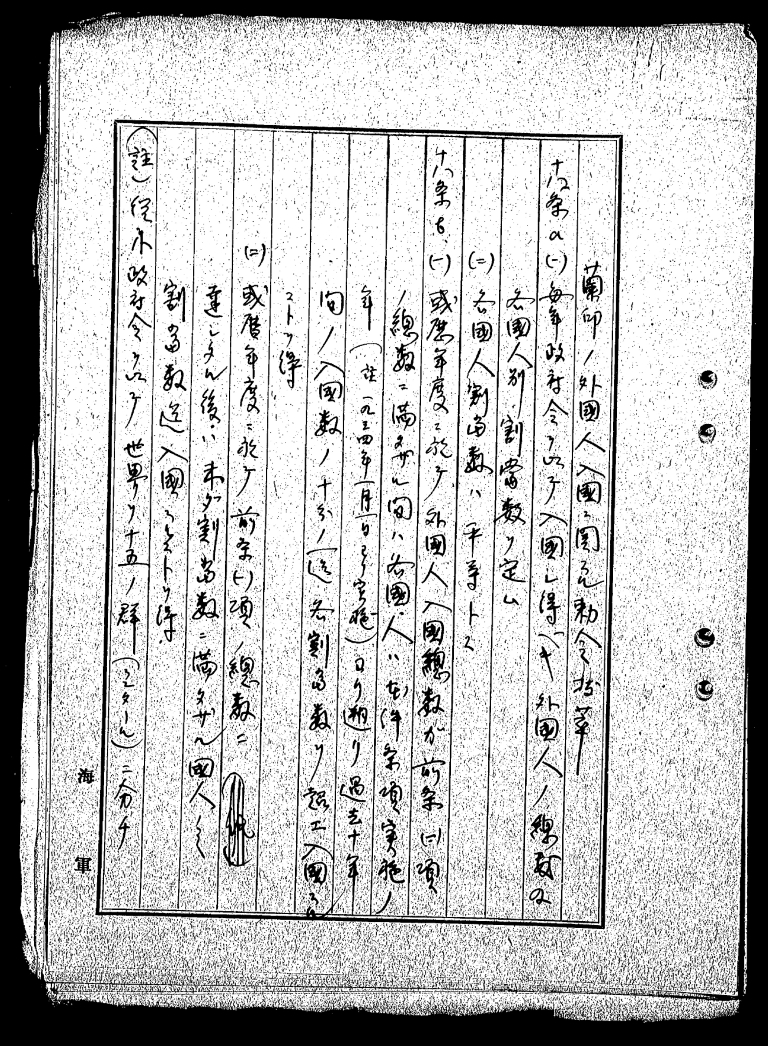 蘭印ノ外國人入國ニ関スル勅令抜萃
十八条a(一)毎年政府令ヲ以テ入國シ得ベキ外國人ノ總数及
各國人別割當数ヲ定ム
(二)各國人割当数ハ平等トス
十八条b.(一)或暦年度ニ於テ外國人入國總数ガ前条(一)項
ノ總数ニ満タザル間ハ各國人ハ本件条項実施ノ
年(註一九三四年一月一日ヨリ実施)ヨリ遡リ過去十年
間ノ入國数ノ十分ノ一迄各割当数ヲ超エ入國スル
コトヲ得
(二)或暦年度ニ於テ前条(一)項ノ總数ニ
達シタル後ハ未ダ割当数ニ満タザル國人ハ
割当数迄入國スルコトヲ得.
(註)従来政府令ヲ以テ世界ヲ十五ノ群()ニ分チ
海軍